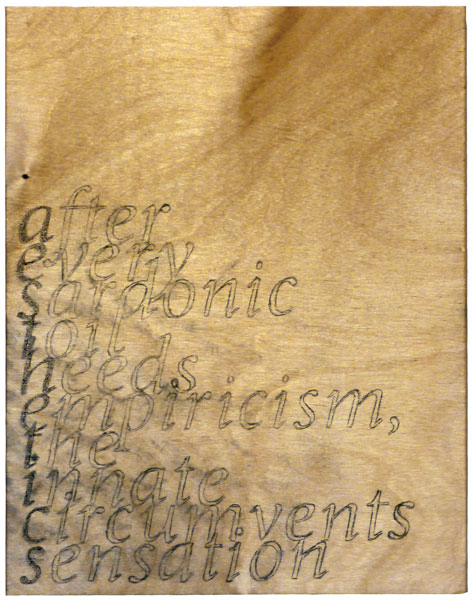 after
every
sardonic
toil
heeds
empiricism,
the
innate
circumvents
sensation